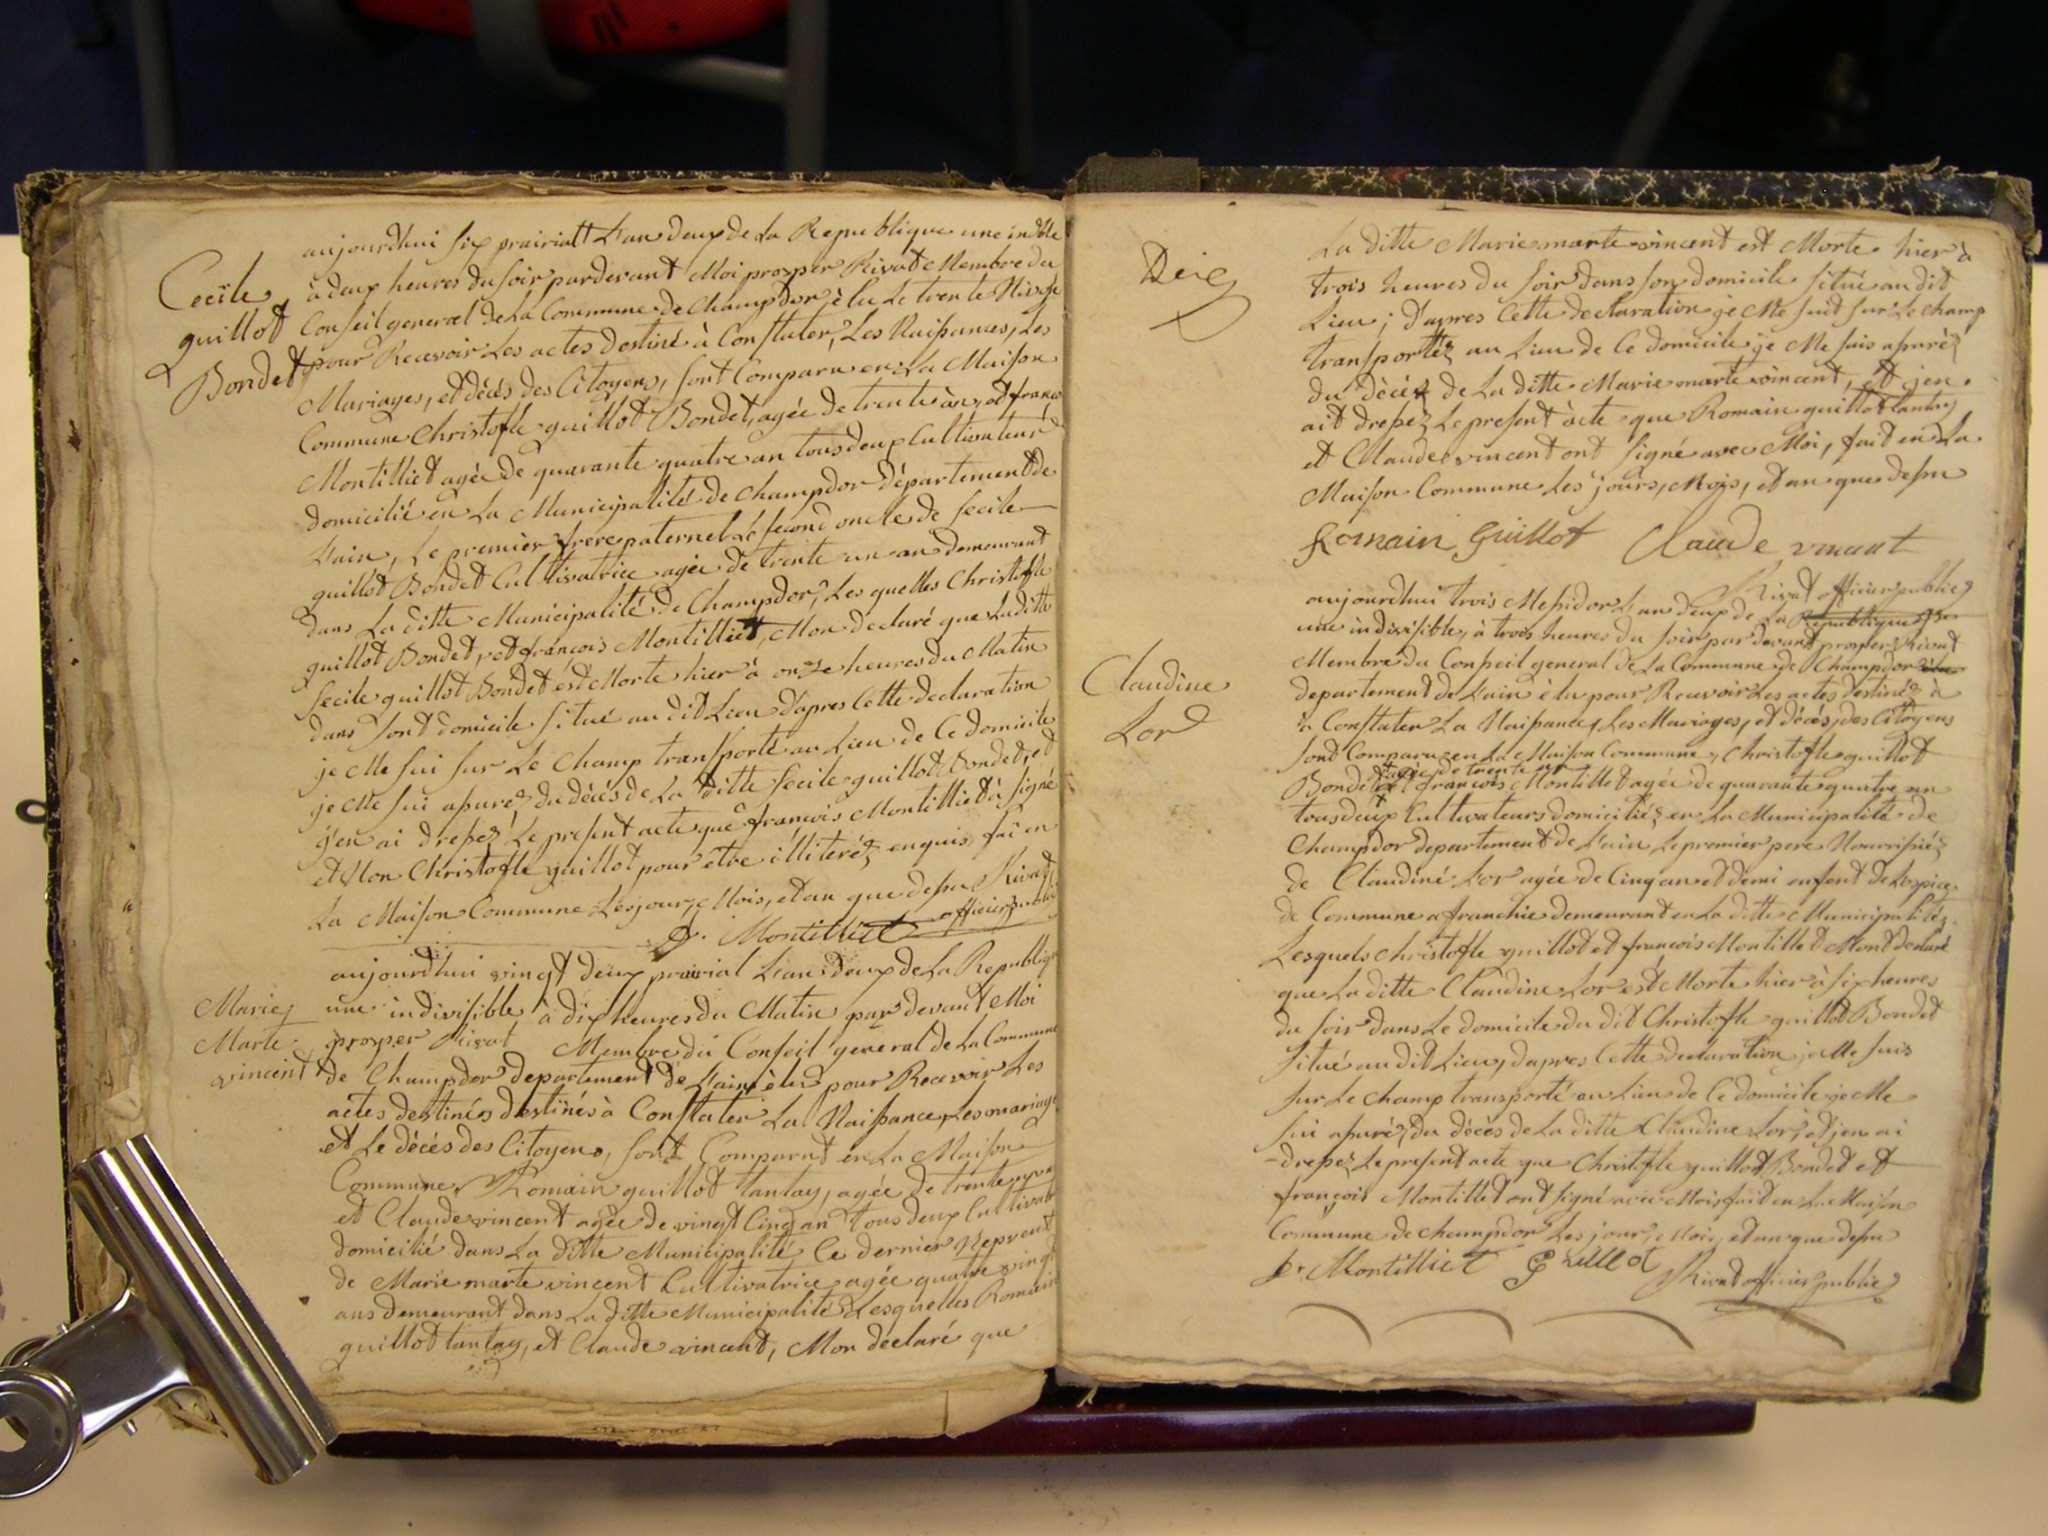 aujourdhui six prairialt Lan deux de La Republique une indble
Cecile
guillot
Bondet
à deux heures du soir pardevant Moi prosper Rivat Membre du
Conseil general de La Commune de Champdor, èlu Le trente Nivose
pour Recevoir Les actes destiné à Constater, Les Naissances, Les
Mariages, et décès des Citoyens, sont Comparu en La Maison
Commune Christofle guillot Bondet, agée de trente ans, et francois
Montilliet agée de quarante quatre an tous deux Cultivateur
domicilié en La Municipalité de Champdor Département de
Lain, Le premier frere paternel Le second oncle de Secile
guillot Bondet Cultivatrice agée de trente un an demeurant
dans La ditte Municipalité de Champdor, Les quelles Christofle
guillot Bondet, et françois Montilliet, Mon declaré que Laditte
Secile guillot Bondet est Morte hier à onze heures du Matin
dans sont domicile situé au dit Lieu d'apres Cette declaration
je Me sui sur Le Champ transporté au Lieu de Ce domicile
je Me sui asuréz du décès de La ditte Secile guillot Bondet, et
j'en ai dressez Le present acte que francois Montilliet à signé
et Non Christofle guillot pour etre illiteréz enquis, fai en
La Maison Commune Les jour, Mois, et an que dessu Rivat
f. Montilliet officier public
aujourdhui vingt deux prairial Lan deux de La Republique
Marie
Marte
vincent
une indivisible à dix heures du Matin par devant Moi
prosper Rivat Membre du Conseil general de La Commune
de Champdor departement de Lain èlu pour Recevoir Les
actes destinés destinés à Constater La Naissance, Les mariage
et Le décés des Citoyens, sont Comparut en La Maison
Commune, Romain guillot tantay, agée de trente
et Claude vincent agée de vingt Cinq an tous deux Cultivate
domicilié dans La ditte Municipalité Ce dernier Neprent
de Marie marte vincent Cultivatrice agée quatre vingt
ans demeurant dans La ditte Municipalité Lesquelles Romain
guillot tantay, et Claude vincent, Mon declaré que
La ditte Marie marte vincent est Morte hier à
trois heures du soir dans son domicile situé au dit
Lieu; d'apres Cette declaration je Me suit sur Le champ
transportéz au Lieu de Ce domicile je Me suis asuréz
du décéz de La ditte Marie marte vincent, et jen
ait dressez Le present àcte que Romain guillot tantay
et Claude vincent ont signé avec Moi, fait en La
Maison Commune Les jours, Mois, et an que dessu
Romain Guillot Claude vincent
Rivat officier public
aujourdhui trois Messidor Lan deux de La Republique
Claudine
Lor
une indivisible, à trois heures du soir par devant prosper Rivat
Membre du Conseil general de La Commune de Champdor
departement de Lain èlu pour Recevoir Les actes destinéz à
à Constater La Naissance, Les Mariages, et décés, des Citoyens
sont Comparu en La Maison Commune, Christofle guillot
agée de trente
Bondet et francois Montillet agée de quarante quatre an
tous deux Cultivateurs domiciliéz en La Municipalité de
Champdor departement de Lain, Le premier pere Nourisiéz
de Claudiné Lor agée de Cinq an et demi enfent de Lospice
de Commune afranchie demeurant en La ditte Municipalitéz
Lesquels Christofle guillot et francois Montillet Mont declaré
que La ditte Claudine Lor est Morte hier à six heures
du soir dans Le domicile du dit Christofle guillot Bondet
situé au dit Lieu, d'apres Cette declaration je Me suis
sur Le champ transporté au Lieu de Ce domicile je Me
sui asuréz du décès de La ditte Claudine Lor, et jen ai
dressez Le present acte que Christofle guillot Bondet et
françois Montillet ont signé avec Moi, fait en La Maison
Commune de Champdor Les jour, Mois, et an que dessu
fr Montilliet Guillot Rivat officier public